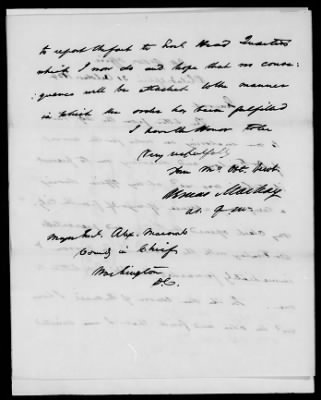 to report the fact to Said Head Quarters
which I now do and hope that no conse-
quences will be attached to the manner
in which the order has been fulfilled
I have the Honor to be
Very respectfully
Your Mo. Obt. Servt.
Mackay
Major Genl. Alex. Macomb
Comdg in Chief
Washington
D.C.